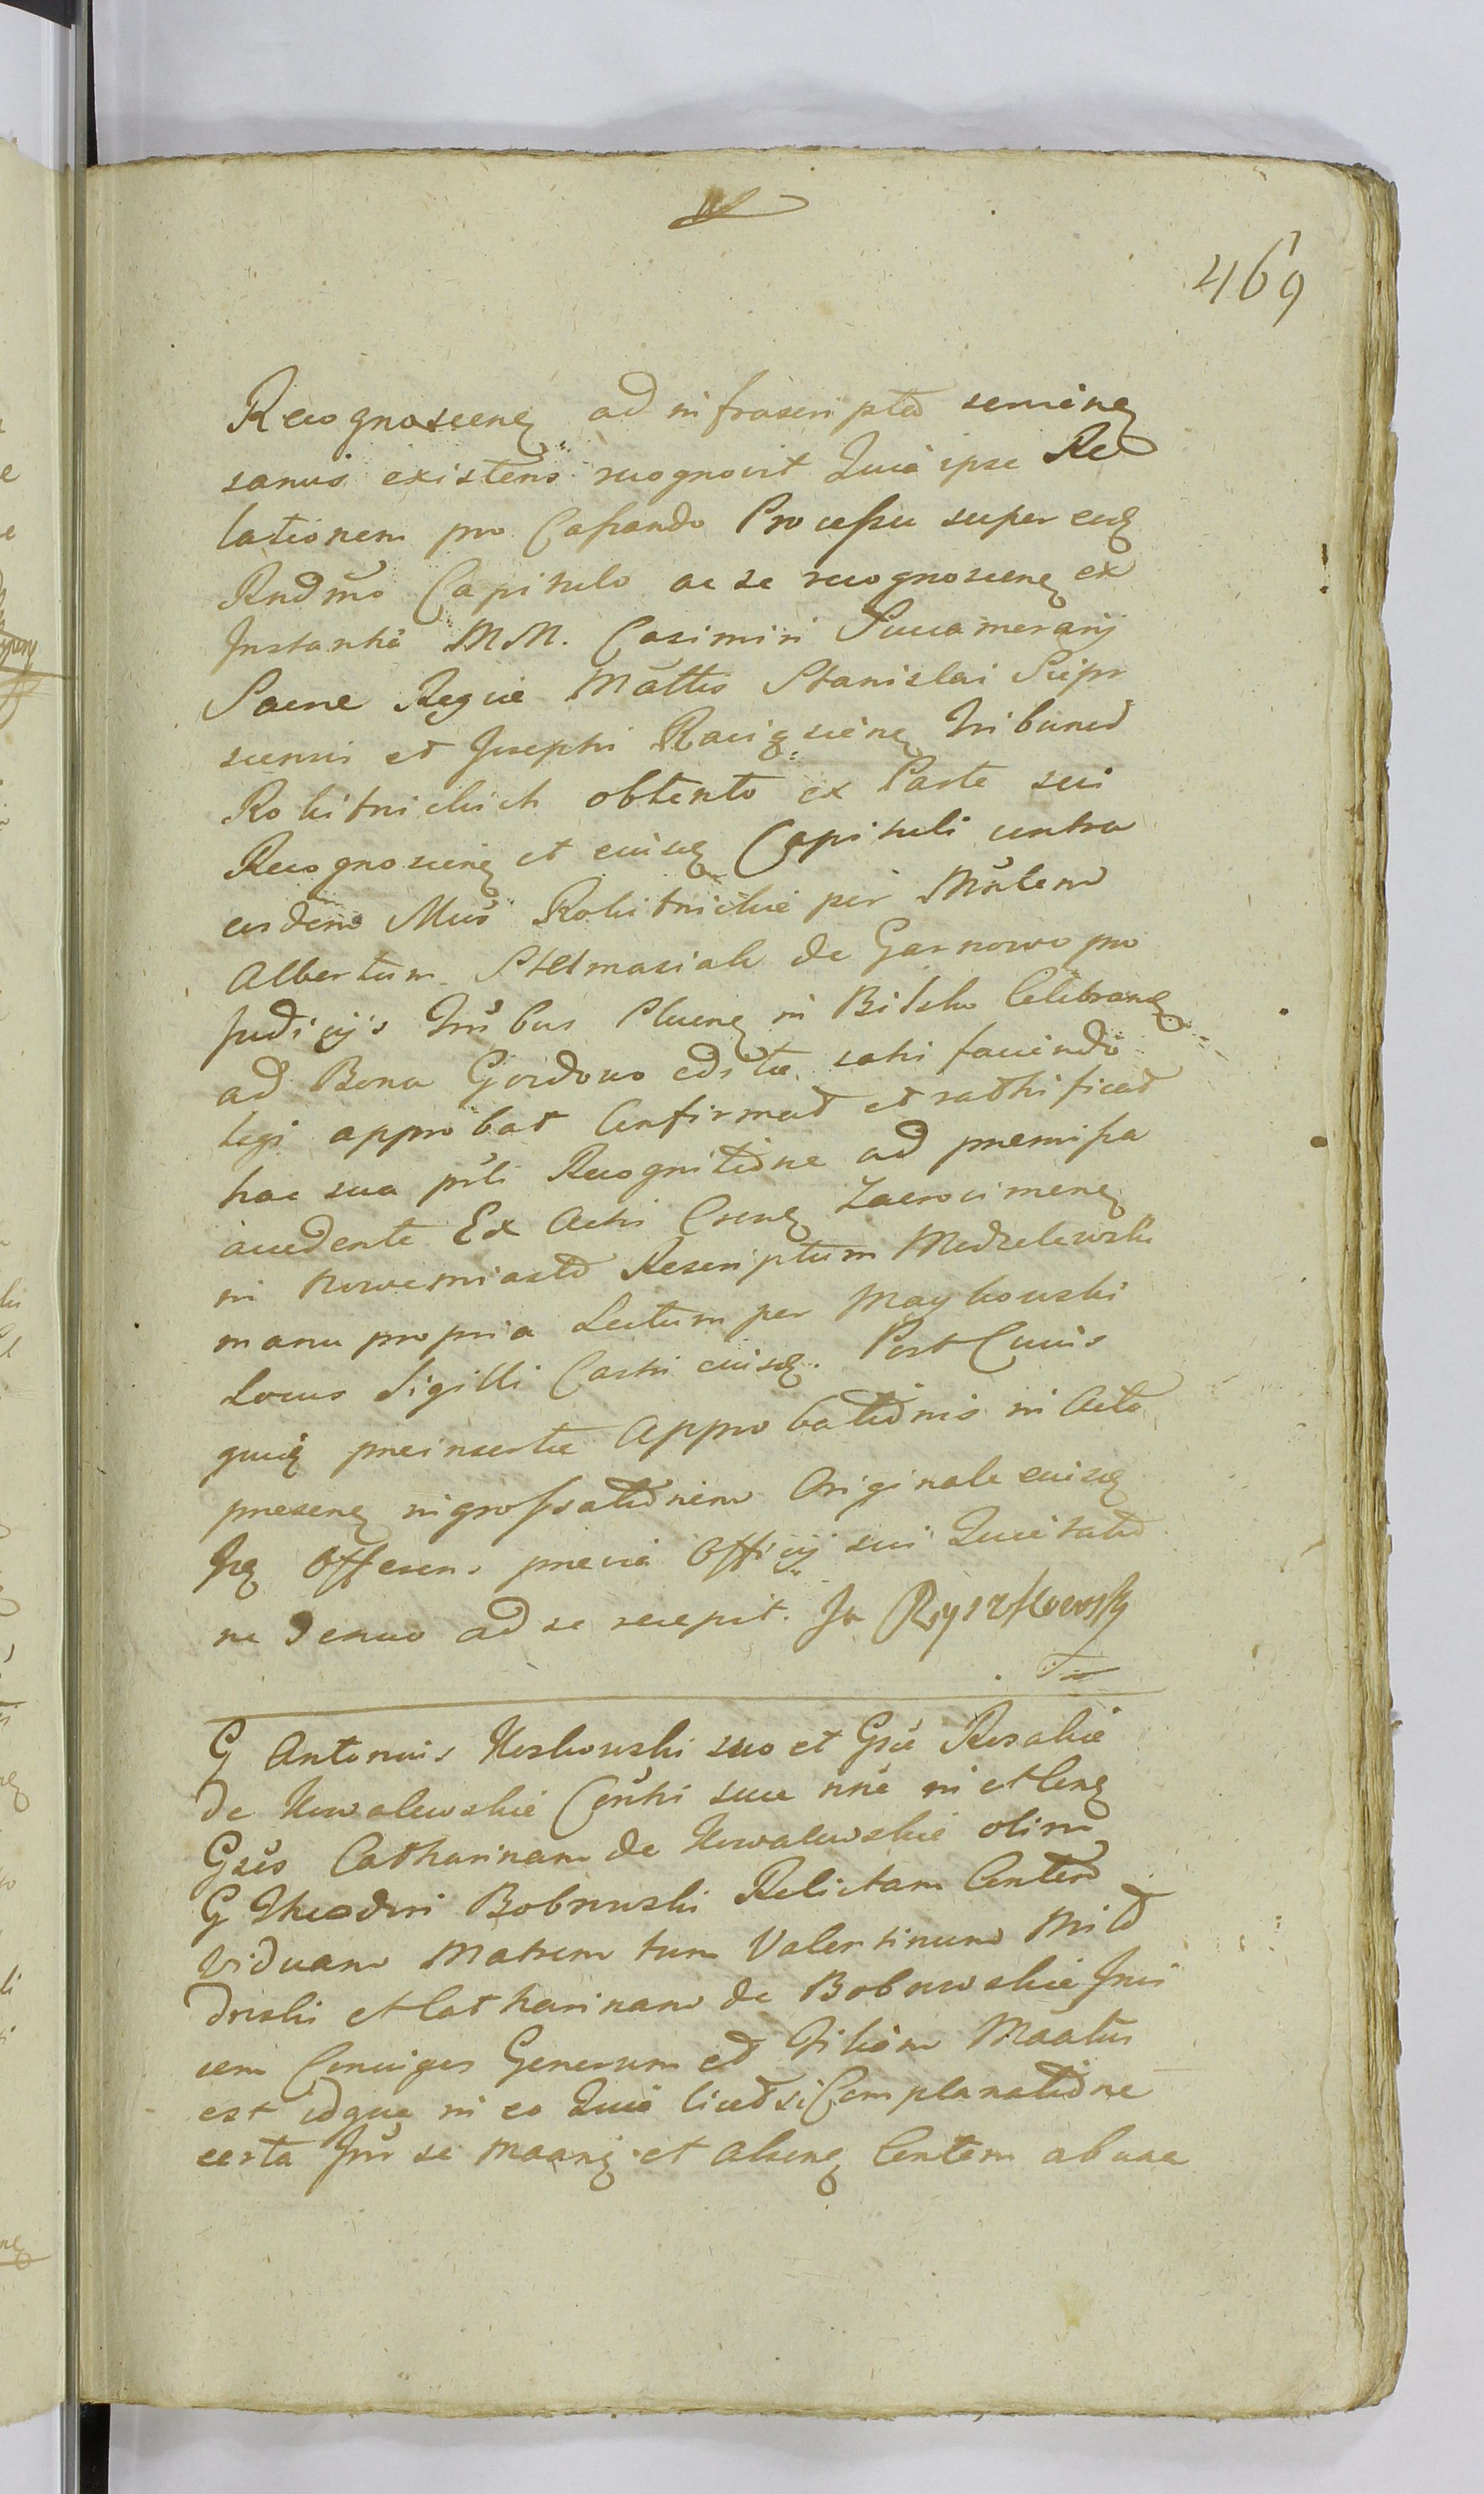 469
Recognoscens ad infrascripta semine
sanus existens recognovit Quia ipse Re
lationem pro Cassando Processu super eod
Rndmo Capitulo ac se recognoscens ex
Instantia MM. Casimiri Succamerarij
Sacrae Regiae Mattis Stanislai
et Josephi Tribuned
Rokitnickich obtento ex Parte sui
Recognoscens et eiusd Capituli contra
eosdem Mcos Rokitnickie per Mnlem
Albertum Stelmasiak de Garnowo pro
Judicijs Plocens in Bilsko Celebrand
ad Bona Gordowo edita satisfaciendo
legi approbat Confirmat et ratificat
hac sua prti Recognitione ad premissa
accedente Ex Actis Crens Zacrocimens
in Nowemiasto Rescriptum Modzelewski
manu propria Lectum per Maykowski
Locus Sigilli Castri eiusd. Post Cuius
quid preinsertae Approbationis in Acta
presens ingrossationem Originale eiusd
Id Offerens previa Officij sui Quietatio
ne denuo ad se recepit. Ja Ryszkowsky
G Antonius Koskowski suo et Gsae Rosaliae
de Kowalewskie Conthi suae nne in et Cong
Gsas Catharinam de Kowalewskie olim
G Theodori Bobrowski Relictam Conten
Viduam Matrem tum Valentinum
et Catharinam de Bobrowskie Invi
cem Coniuges Generum et Filiam Maatus
est idque in eo Quia licet si Complanatione
certa Intr se Maang et absens Conten ab una